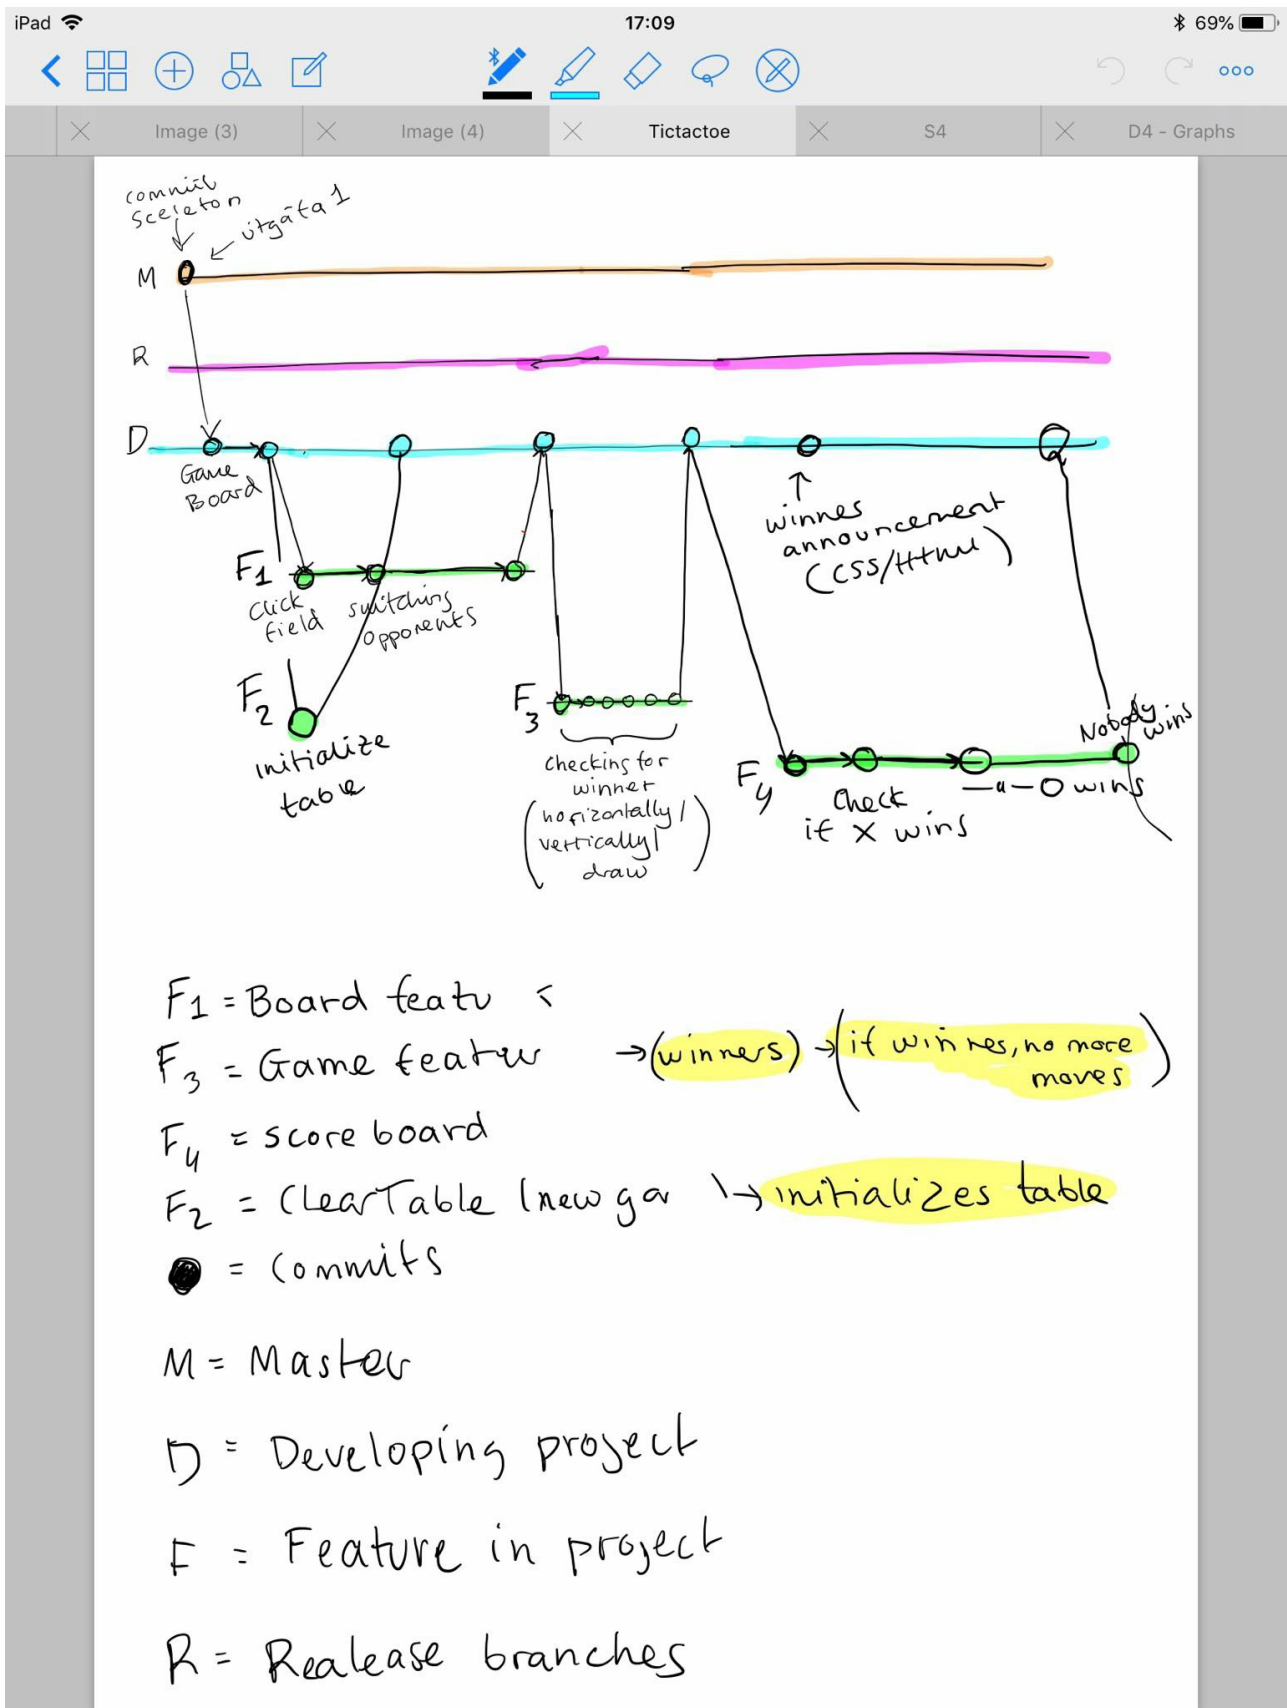 iPad 17:09 69%
Image (3) Image (4) Tictactoe S4 D4 - Graphs
commit
Sceleton
útgáfa 1
M
R
D
Game
Board
winnes
announcement
(CSS/Html)
F1
Click
field
switching
opponents
F2
initialize
table
F3
checking for
winner
(horizontally/
vertically/
draw)
Nobody
wins
F4
Check
if X wins
—"— O wins
F1 = Board featu
F3 = Game featur → (winners) → (if winnes, no more
moves)
F4 = score board
F2 = ClearTable (new ga → initializes table
= Commits
M = Master
D = Developing project
F = Feature in project
R = Realease branches